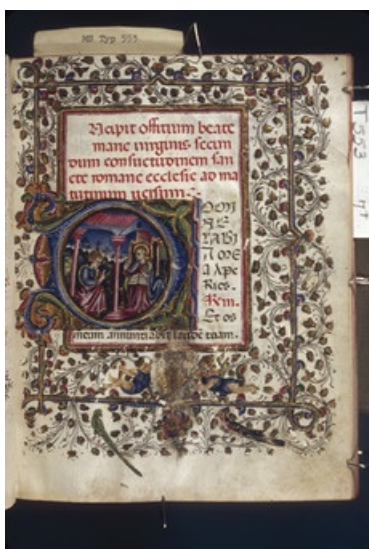 MS Typ 553
Ncipit offitium beate
marie uirginis secun
dum consuetudinem san
cte romane ecclesie ad ma
tutinum uersim
Domi
ne
labi
a mea
aipe
Ries.
Rem.
Et os
meum annuntiabit laudem tuam.
T 553
4r